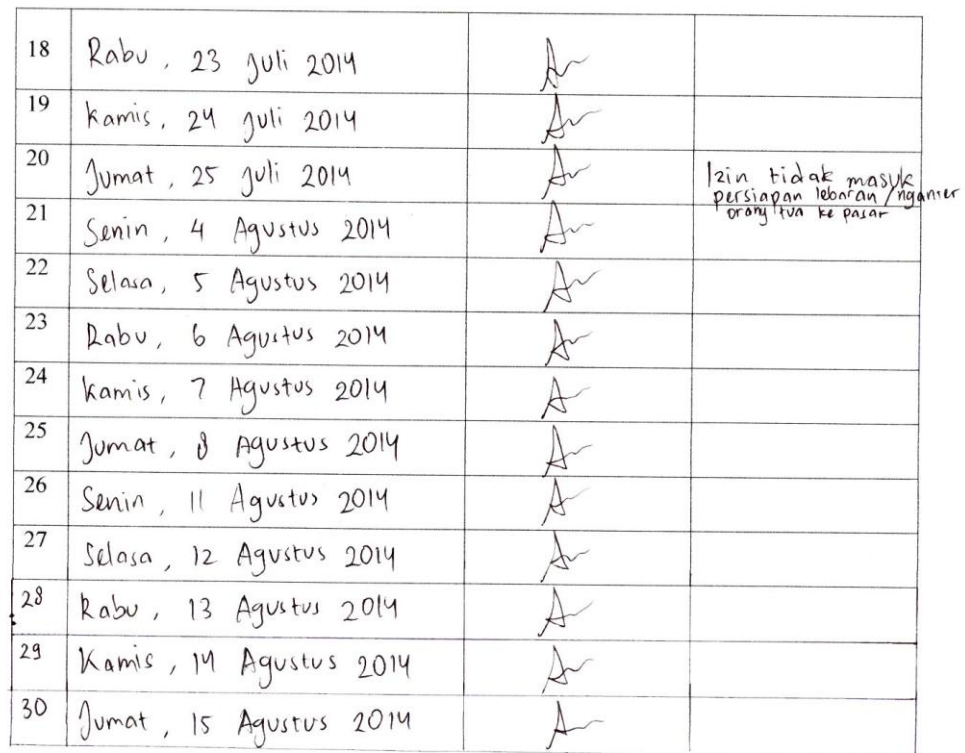 18 Rabu, 23 Juli 2014
19 Kamis, 24 Juli 2014
20 Jumat, 25 Juli 2014 Izin tidak masuk
persiapan lebaran/nganter
orang tua ke pasar
21 Senin, 4 Agustus 2014
22 Selasa, 5 Agustus 2014
23 Rabu, 6 Agustus 2014
24 Kamis, 7 Agustus 2014
25 Jumat, 8 Agustus 2014
26 Senin, 11 Agustus 2014
27 Selasa, 12 Agustus 2014
28 Rabu, 13 Agustus 2014
29 Kamis, 14 Agustus 2014
30 Jumat, 15 Agustus 2014